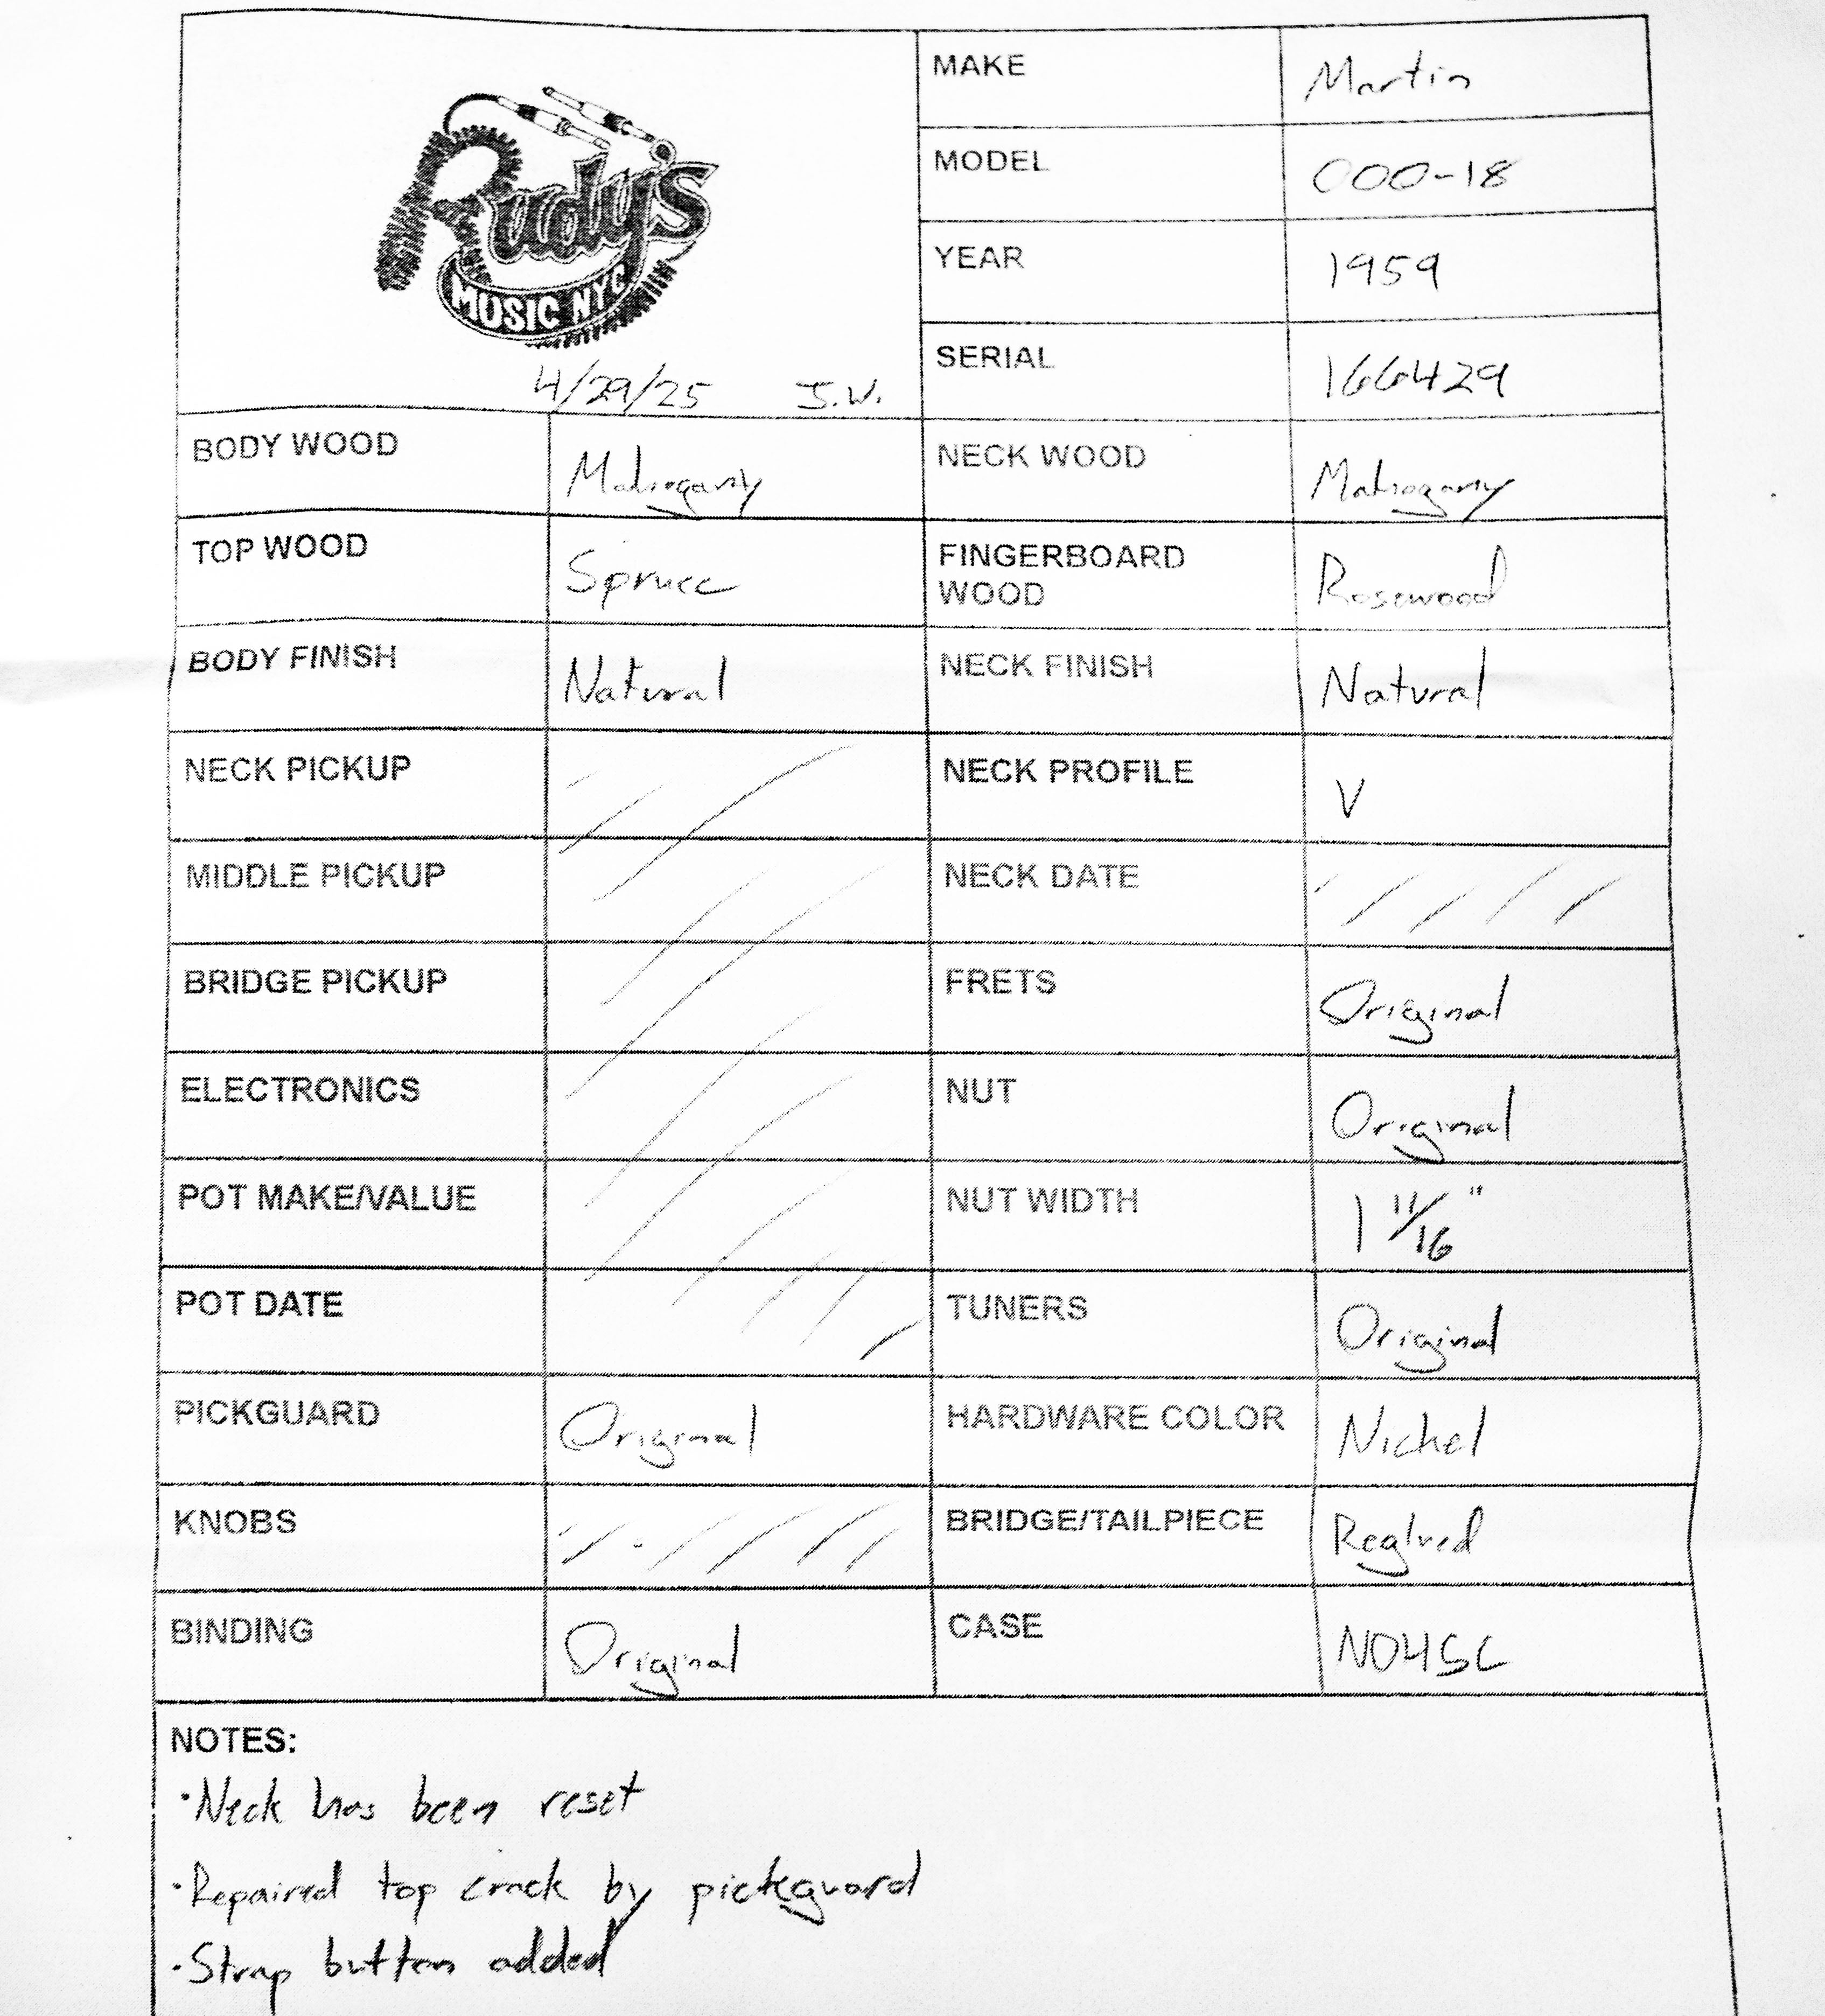 Rudy's
MUSIC NYC
4/29/25 J.W.
MAKE Martin
MODEL 000-18
YEAR 1959
SERIAL 166429
BODY WOOD Mahogany NECK WOOD Mahogany
TOP WOOD Spruce FINGERBOARD
WOOD Rosewood
BODY FINISH Natural NECK FINISH Natural
NECK PICKUP NECK PROFILE V
MIDDLE PICKUP NECK DATE
BRIDGE PICKUP FRETS Original
ELECTRONICS NUT Original
POT MAKE/VALUE NUT WIDTH 1 11/16"
POT DATE TUNERS Original
PICKGUARD Original HARDWARE COLOR Nickel
KNOBS BRIDGE/TAILPIECE Reglued
BINDING Original CASE NOHSC
NOTES:
·Neck has been reset
·Repaired top crack by pickguard
·Strap button added